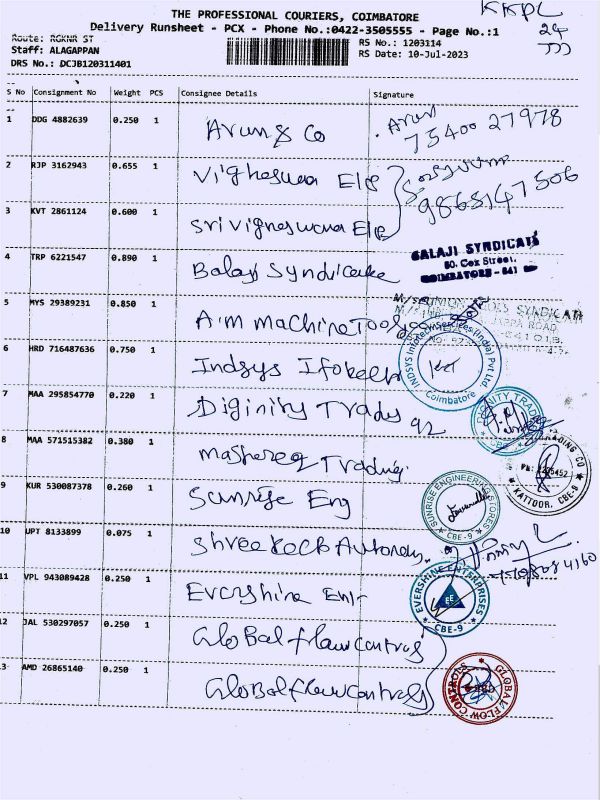 THE PROFESSIONAL COURIERS, COIMBATORE
KKPL
Delivery Runsheet - PCX - Phone No.:0422-3505555 - Page No.:1
24
Route: RGKNR ST
RS No.: 1203114
Staff: ALAGAPPAN
RS Date: 10-Jul-2023
DRS No.: DCJB120311401
S No Consignment No Weight PCS Consignee Details Signature
1 DDG 4882639 0.250 1 Arun & Co Arun
75400 27978
2 RJP 3162943 0.655 1 Vigheswara Ele
9865147506
3 KVT 2861124 0.600 1 Sri Vigneswara Ele
4 TRP 6221547 0.890 1 Balaji Syndicate BALAJI SYNDICATE
60. Cox Street,
COIMBATORE - 641
5 MYS 29389231 0.850 1 Aim machine Tools
SYNDICATE
ROAD
6 HRD 716487636 0.750 1 Indsys Ifotech INDSYS Infotech Services (India) Pvt Ltd
Coimbatore
7 MAA 295854770 0.220 1 Diginity Trades
8 MAA 571515382 0.380 1 mashereq Trading TRADING CO
KATTOOR, CBE-9
9 KUR 530087378 0.260 1 Sunrise Eng SUNRISE ENGINEERING STORES
CBE-9
10 UPT 8133899 0.075 1 Shree
11 VPL 943089428 0.250 1 Evershine Entr EVERSHINE ENTERPRISES
EE
CBE-9
12 JAL 530297057 0.250 1 Global flow controls
13 AMD 26865140 0.250 1 Global flow controls GLOBAL FLOW CONTROLS